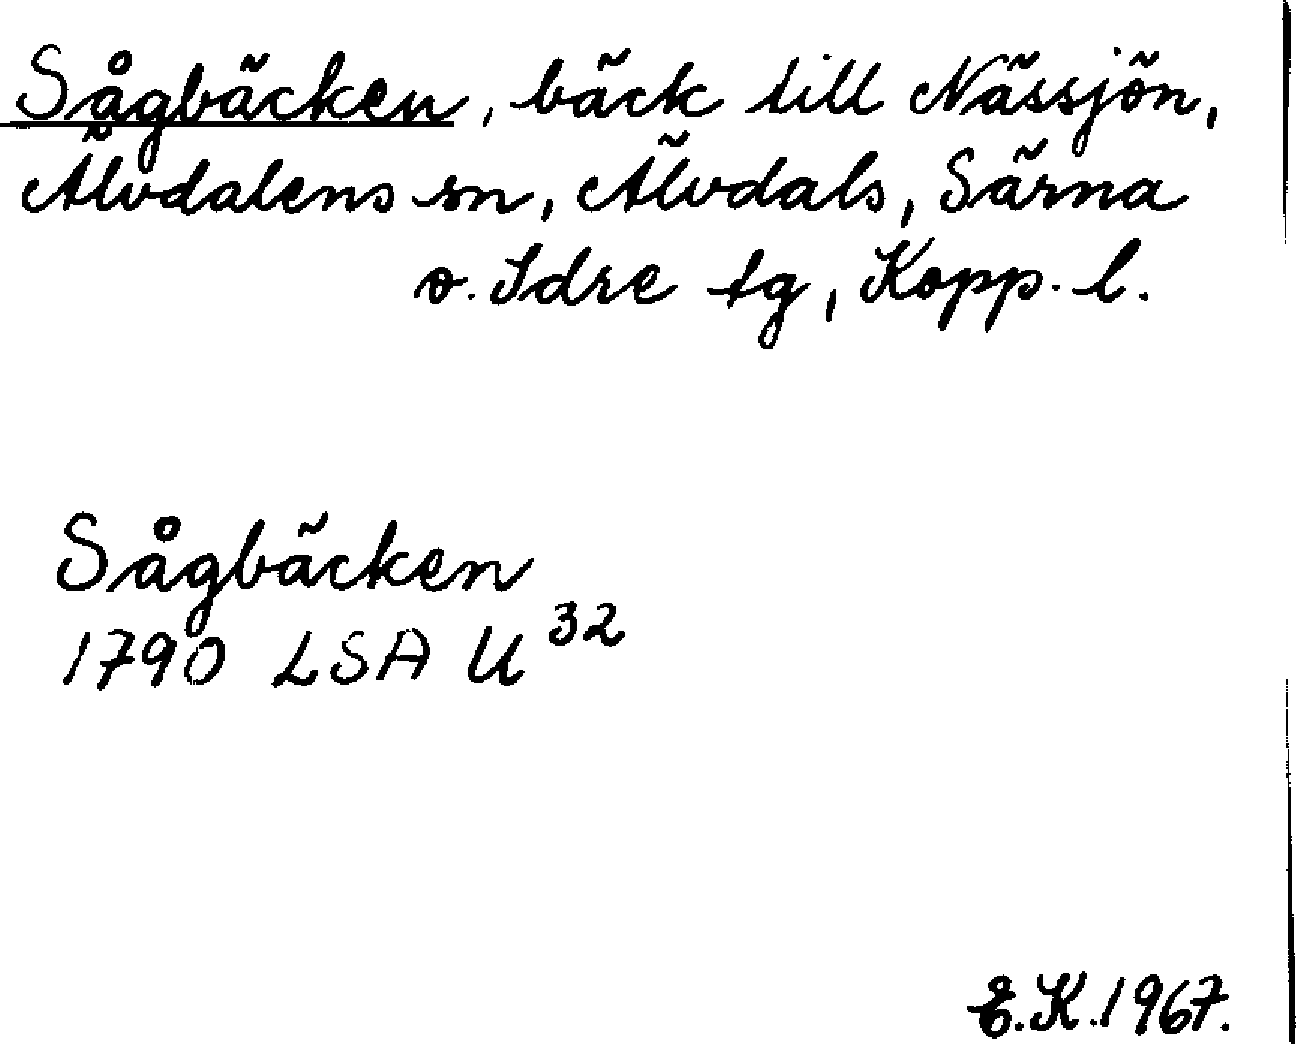 Sågbäcken, bäck till Nässjön,
Älvdalens sn, Älvdals, Särna
o. Idre tg, Kopp. l.
Sågbäcken
1790 LSA U 32
E.K. 1967.